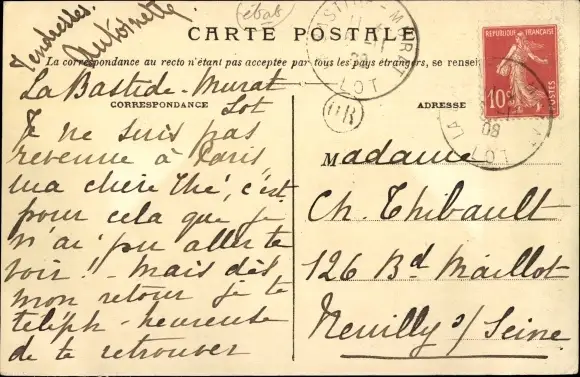 Tendresses.
Antoinette
état
CARTE POSTALE
La correspondance au recto n'étant pas acceptée par tous les pays étrangers, se rensei
CORRESPONDANCE
ADRESSE
La Bastide-Murat
Lot
Je ne suis pas
revenue à Paris
ma chère Thé, c'est
pour cela que je
n'ai pu aller te
voir ! - Mais dès
mon retour je te
téléph - heureuse
de te retrouver
LOT
OR
REPUBLIQUE FRANÇAISE
10
POSTES
08
LOT
Madame
Ch. Thibault
126 Bd Maillot
Neuilly s/ Seine